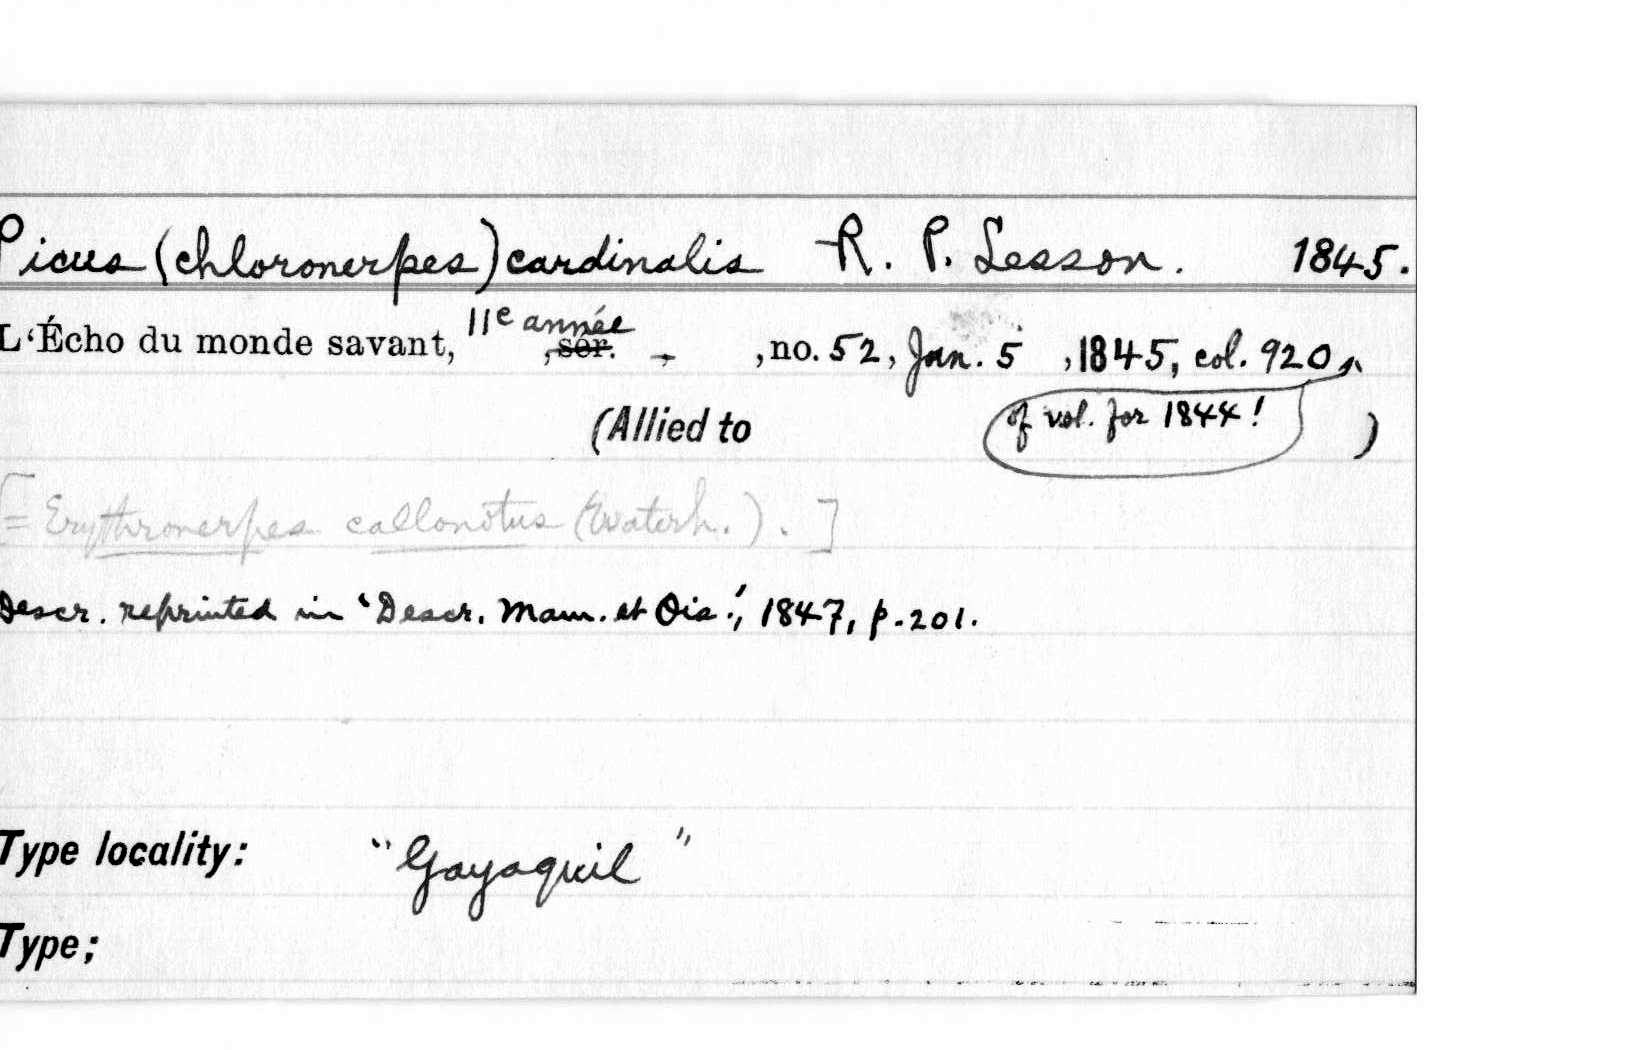 Picus (chloronerpes) cardinalis R. P. Lesson. 1845.
L'Écho du monde savant, 11e année, sér. , , no. 52, Jan. 5, 1845, col. 920,
of vol. for 1844!
(Allied to )
[= Erythronerpes callonotus (Waterh.). ]
Descr. reprinted in 'Descr. Mam. et Ois.', 1847, p. 201.
Type locality: "Gayaquil"
Type;